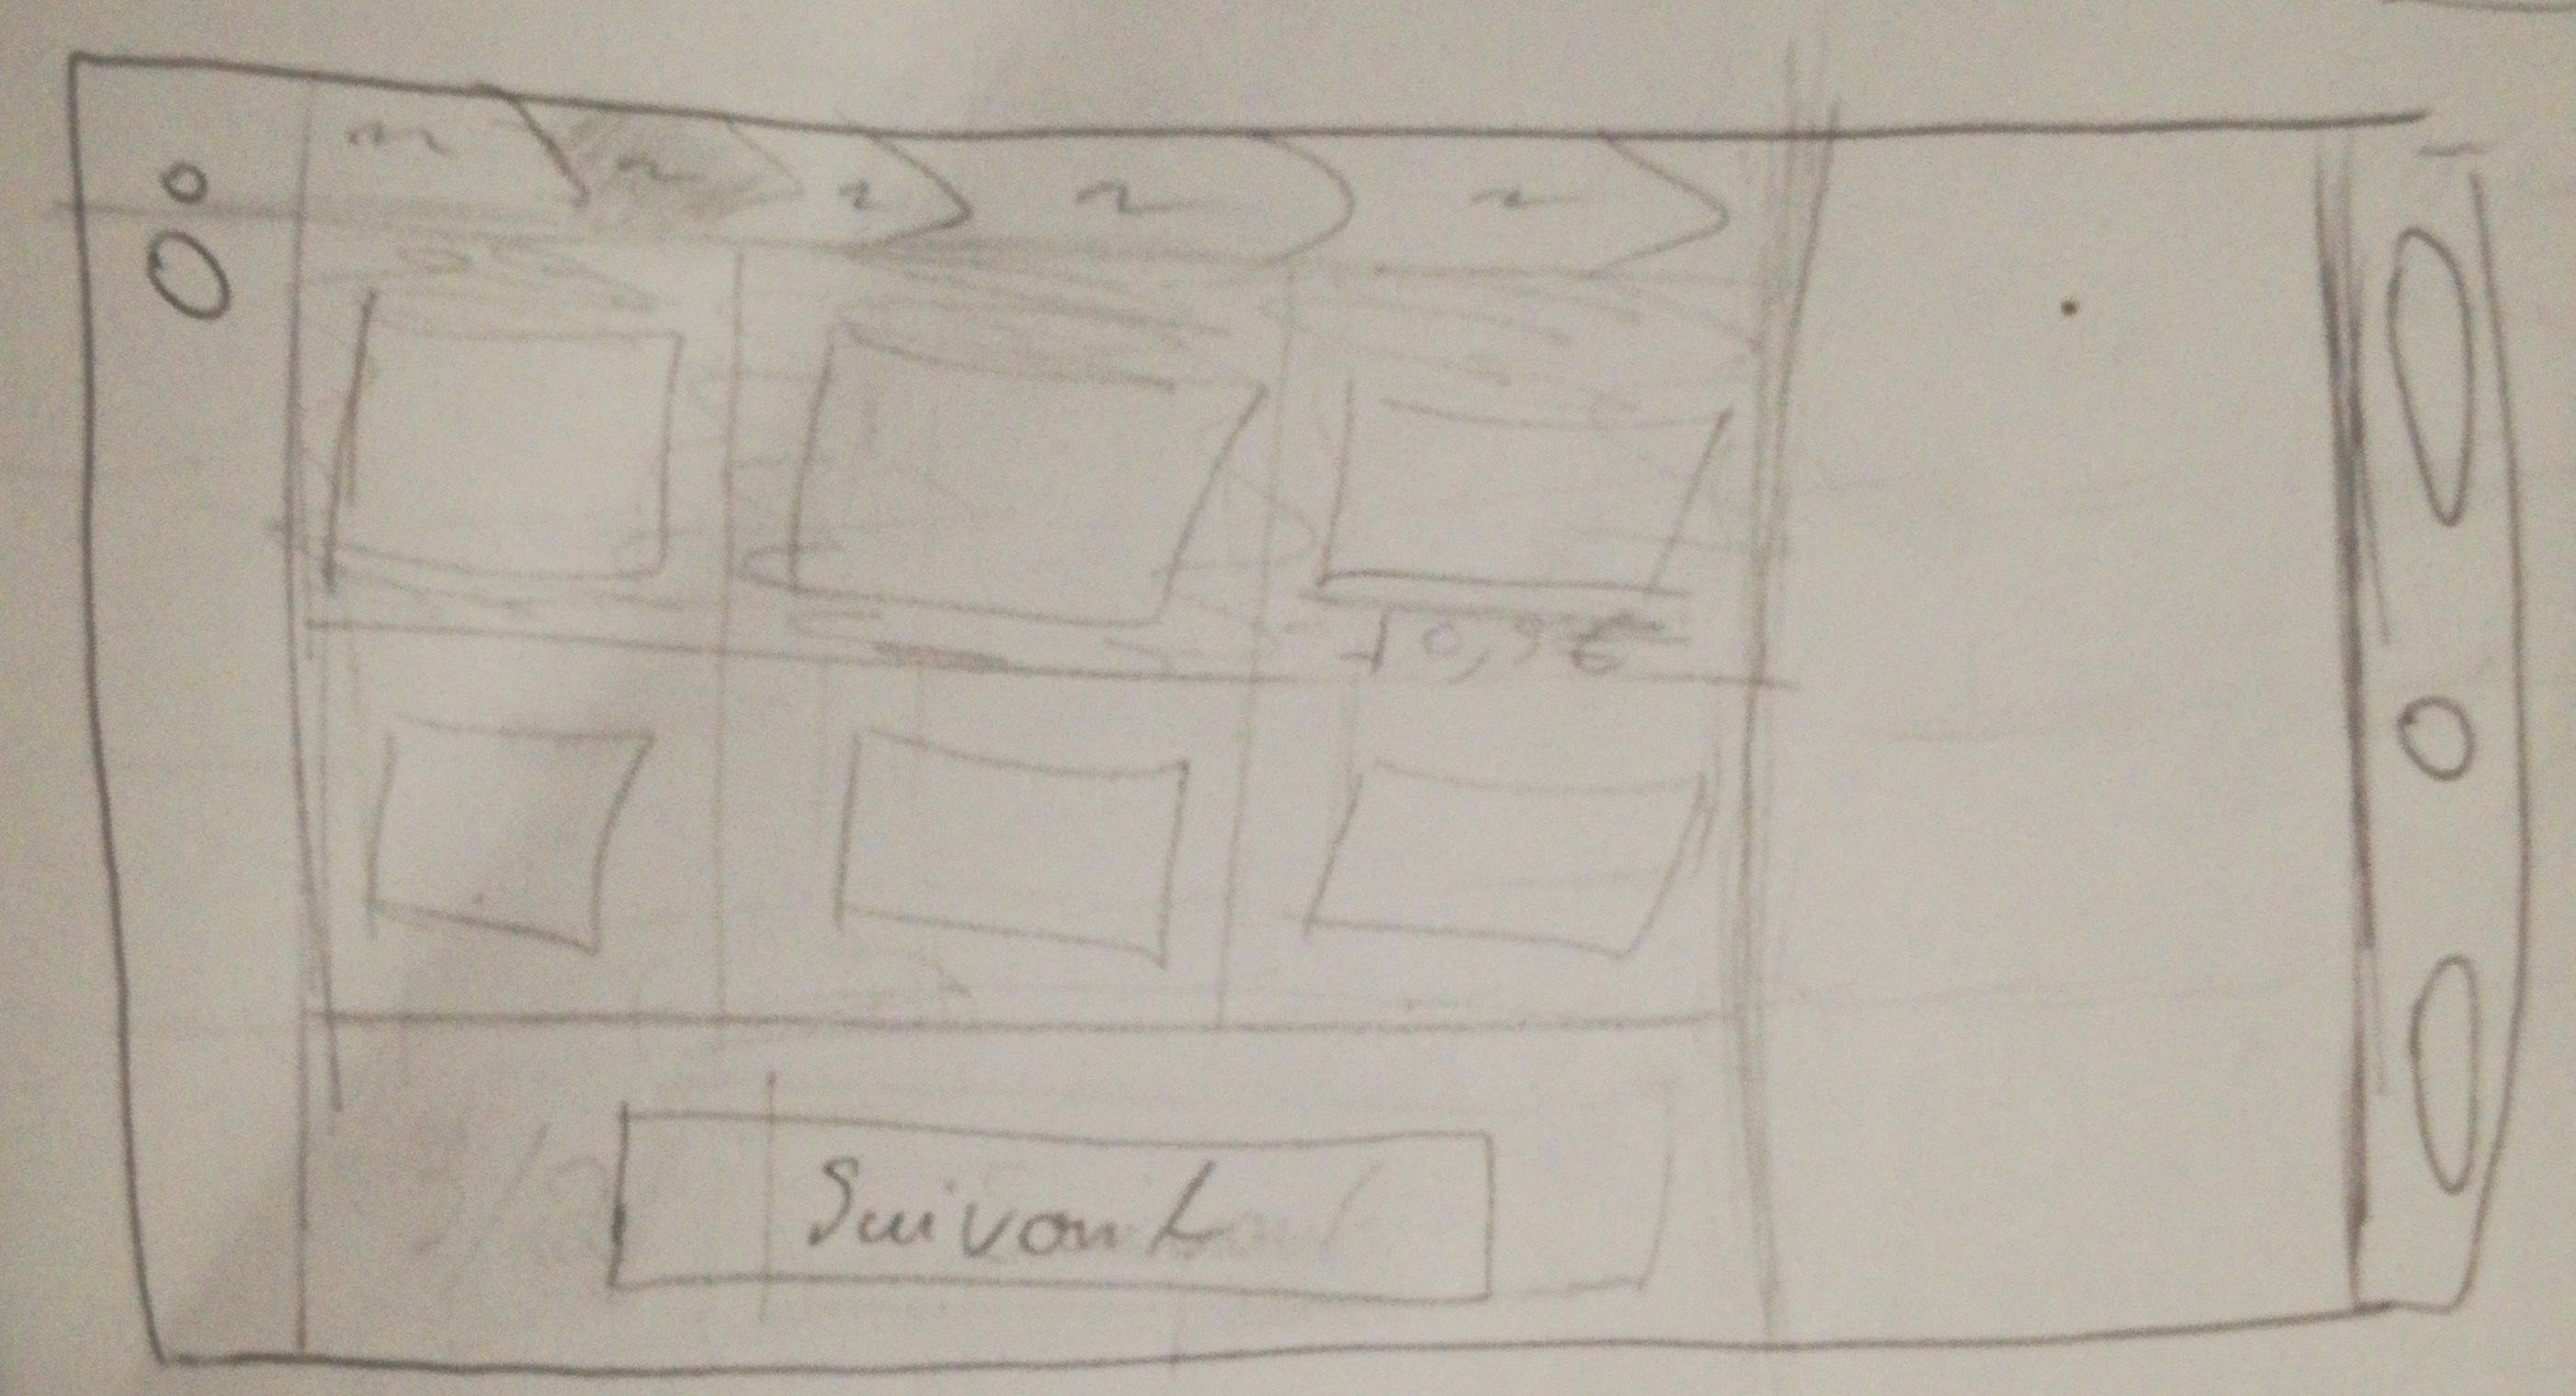 +0,5€
Suivant